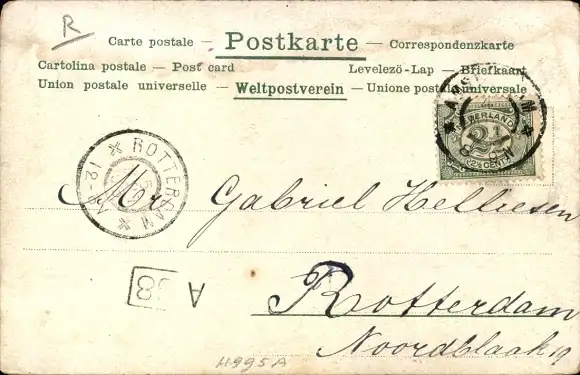 R
Carte postale — Postkarte — Correspondenzkarte
Cartolina postale — Post card Levelező-Lap — Briefkaart
Union postale universelle — Weltpostverein — Unione postale universale
NEDERLAND
2½
2½ CENT
ROTTERDAM
Mr Gabriel Helliesen
Rotterdam
Noordblaak 19
A 38
H995A